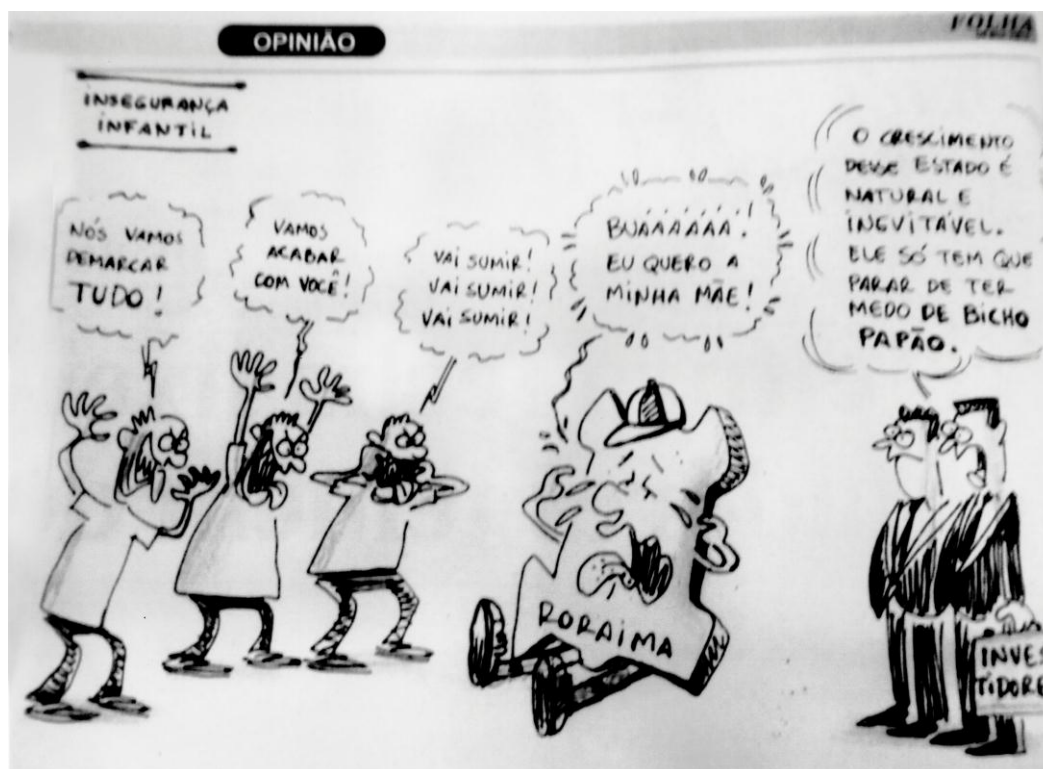 OPINIÃO
FOLHA
INSEGURANÇA
INFANTIL
NÓS VAMOS
DEMARCAR
TUDO!
VAMOS
ACABAR
COM VOCÊ!
VAI SUMIR!
VAI SUMIR!
VAI SUMIR!
BUÁÁÁÁÁÁ!
EU QUERO A
MINHA MÃE!
O CRESCIMENTO
DESSE ESTADO É
NATURAL E
INEVITÁVEL.
ELE SÓ TEM QUE
PARAR DE TER
MEDO DE BICHO
PAPÃO.
RORAIMA
INVES
TIDORE